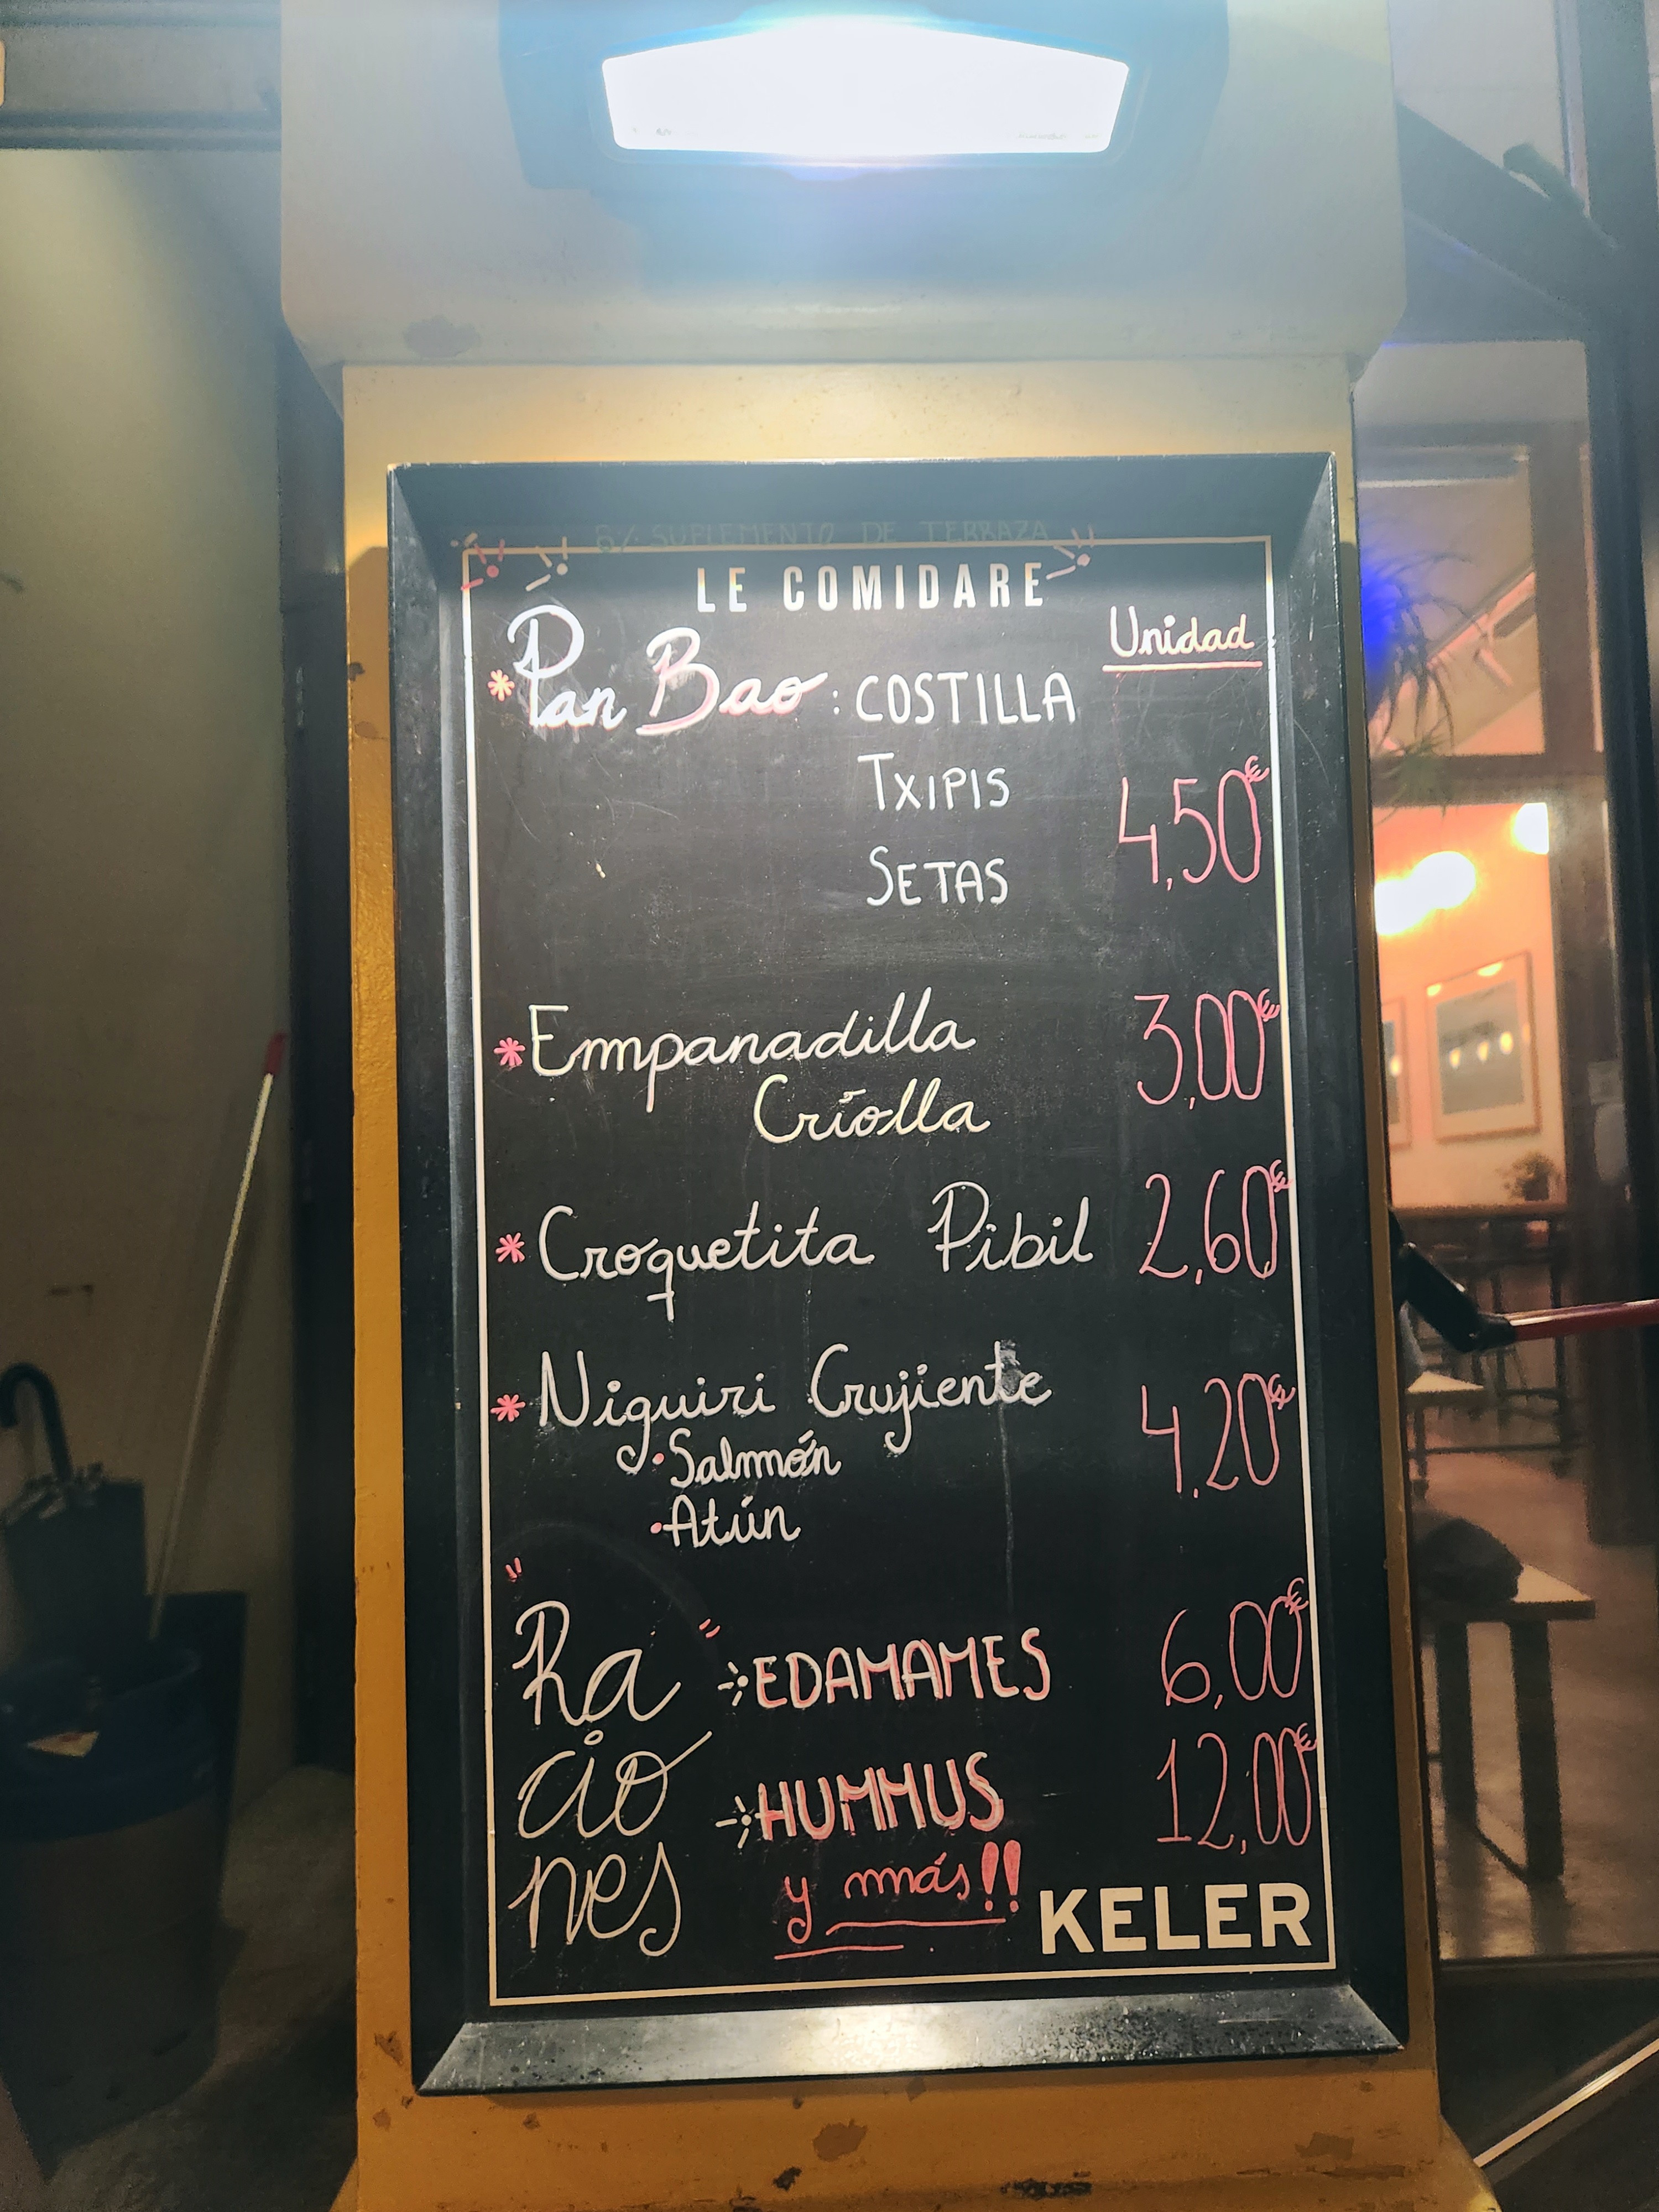 6% SUPLEMENTO DE TERRAZA
LE COMIDARE
Unidad
* Pan Bao: COSTILLA
TXIPIS
4,50€
SETAS
* Empanadilla 3,00€
Criolla
* Croquetita Pibil 2,60€
* Niguiri Crujiente 4,20€
• Salmón
• Atún
Ra
cio
nes
EDAMAMES 6,00€
HUMMUS 12,00€
y más!!
KELER